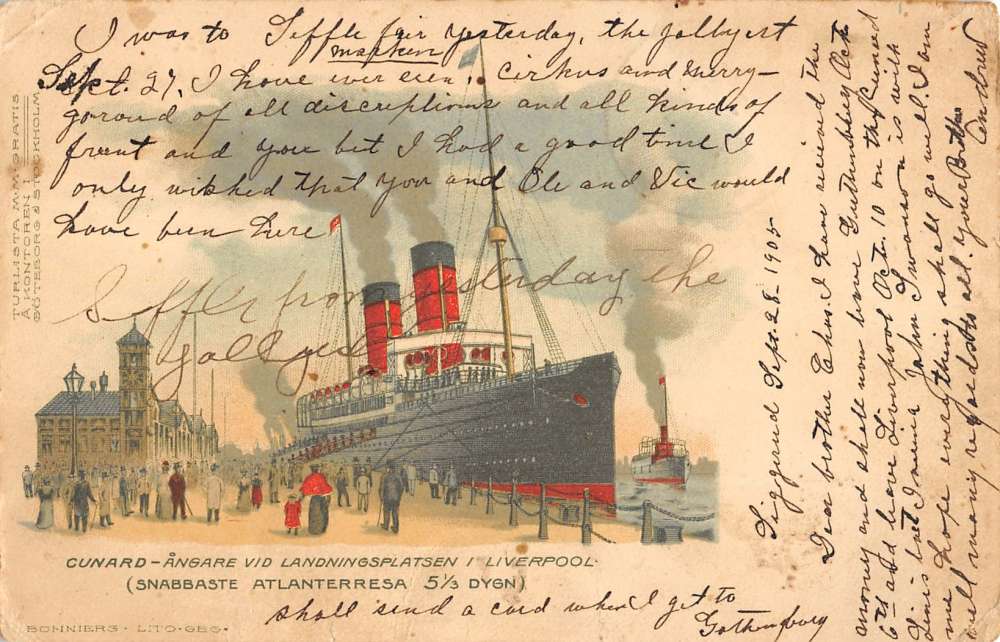 I was to Seffle fair yesterday, the jollyest
marken
Sept. 27, I have ever seen, cirkus and merry-
goround of all discriptions and all kinds of
fruent and you bet I had a good time I
only wished that you and Ole and Vic would
have been here
Seffle from yesterday the
jollyest
TURLISTA M.M. GRATIS
Å KONTOREN I
GÖTEBORG & STOCKHOLM
CUNARD-ÅNGARE VID LANDNINGSPLATSEN I LIVERPOOL.
(SNABBASTE ATLANTERRESA 5⅓ DYGN)
shall send a card when I get to
Gothenburg
BONNIERS LITO. GBG.
Sept. 28 - 1905
Dear brother Chas. I have received the
money and shall now leave Guthenburg Oct
6th and leave Liverpool Oct. 10 on the Cunard
Line is but I min John Swanson is with
me hope everything shall go well. I am
well many regards to all. your Brother
Andrew